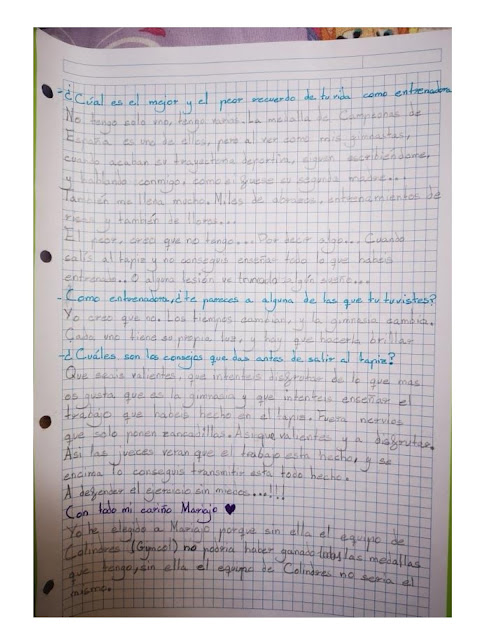 -¿Cuál es el mejor y el peor recuerdo de tu vida como entrenadora
No tengo solo uno, tengo varios. La medalla de Campeonas de
España es uno de ellos, pero al ver como mis gimnastas,
cuando acaban su trayectoria deportiva, siguen escribiéndome,
y hablando conmigo, como si fuese su segunda madre...
También me llena mucho. Miles de abrazos, entrenamientos de
risas y también de lloros...
El peor, creo que no tengo... Por decir algo... Cuando
salís al tapiz y no conseguís enseñar todo lo que habéis
entrenado... O alguna lesión ve truncado algún sueño...
-Como entrenadora, ¿te pareces a alguna de las que tu tuvistes?
Yo creo que no. Los tiempos cambian, y la gimnasia cambia.
Cada uno tiene su propia luz, y hay que hacerla brillar
-¿Cuáles son los consejos que das antes de salir al tapiz?
Que seáis valientes, que intentéis disfrutar de lo que mas
os gusta que es la gimnasia y que intentéis enseñar el
trabajo que habéis hecho en el tapiz. Fuera nervios
que solo ponen zancadillas. Asi que valientes y a disfrutar.
Asi las jueces veran que el trabajo esta hecho, y se
encima lo conseguis transmitir esta todo hecho.
A defender el ejercicio sin miedos...!!!
Con todo mi cariño Mariajo
Yo he elegido a Mariajo porque sin ella el equipo de
Colindres (Gymcol) no podria haber ganado todas las medallas
que tengo, sin ella el equipo de Colindres no seria el
mismo.